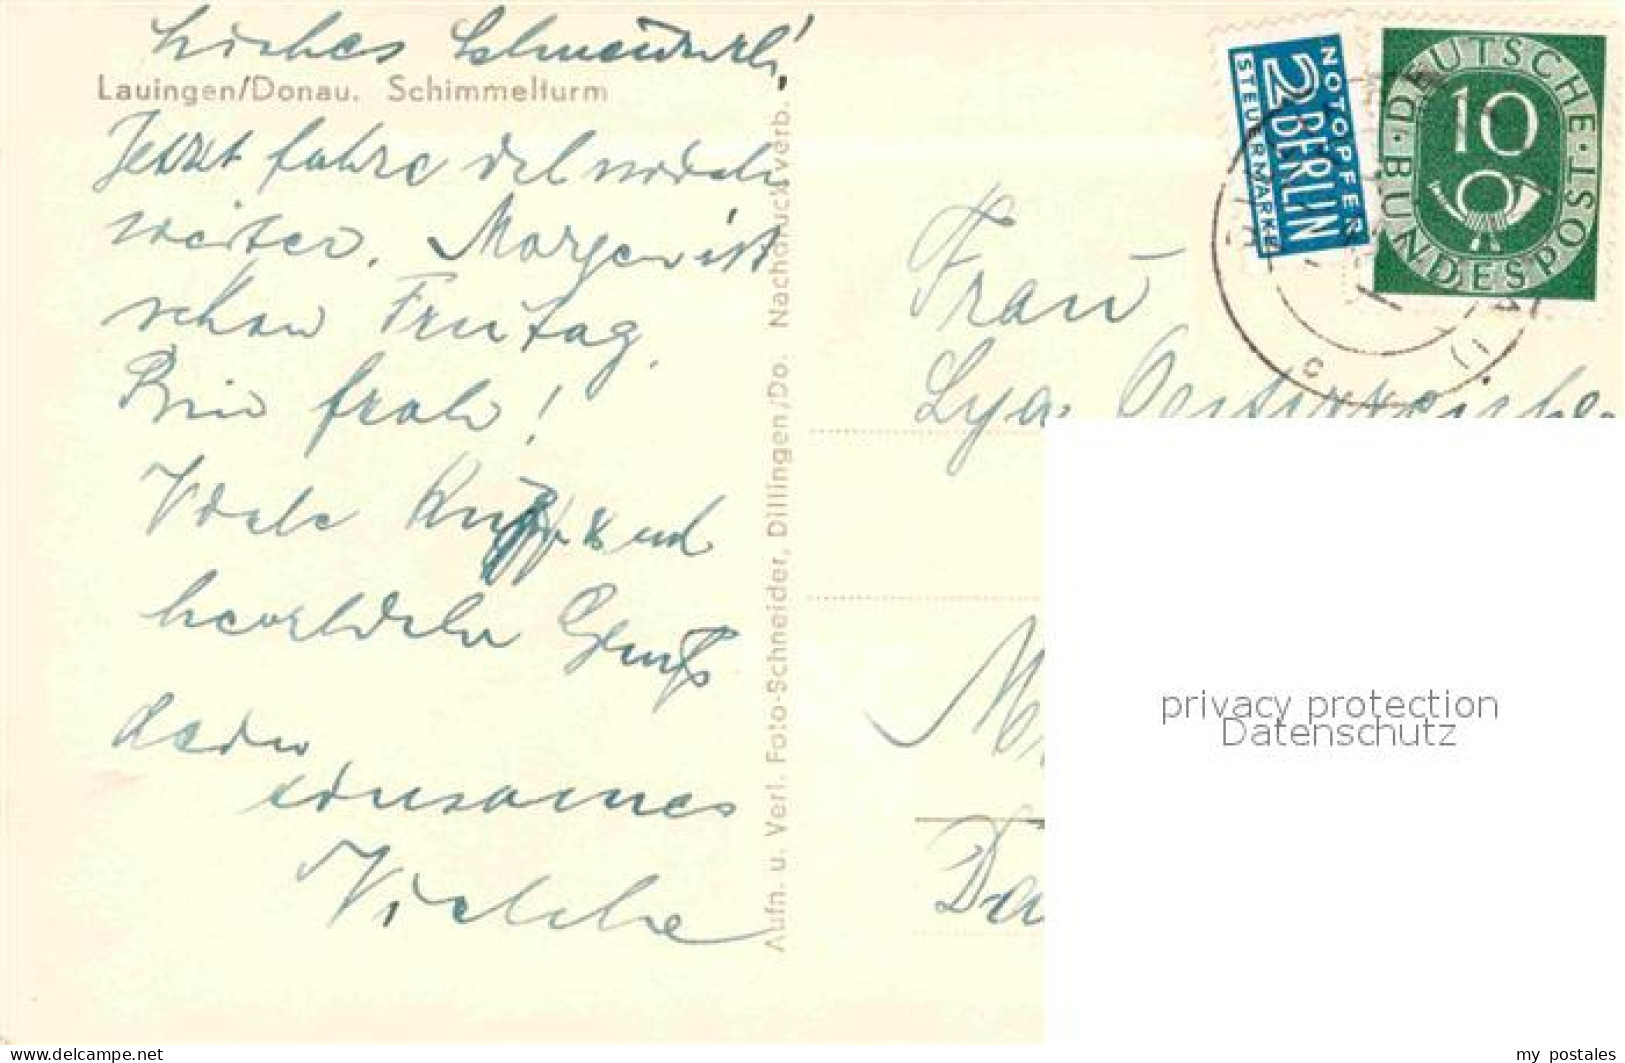 Liebes
Lauingen/Donau. Schimmelturm
Jetzt fahre
weiter. Morgen ist
schon Freitag.
Bin froh!
Viele und
herzliche Grüße
dein
einsames
Aufn. u. Verl. Foto-Schneider, Dillingen/Do. Nachdruck verb.
NOTOPFER
2 BERLIN
STEUERMARKE
DEUTSCHE BUNDESPOST
10
Frau
Lya
M
Da
privacy protection
Datenschutz
www.delcampe.net
my_postales